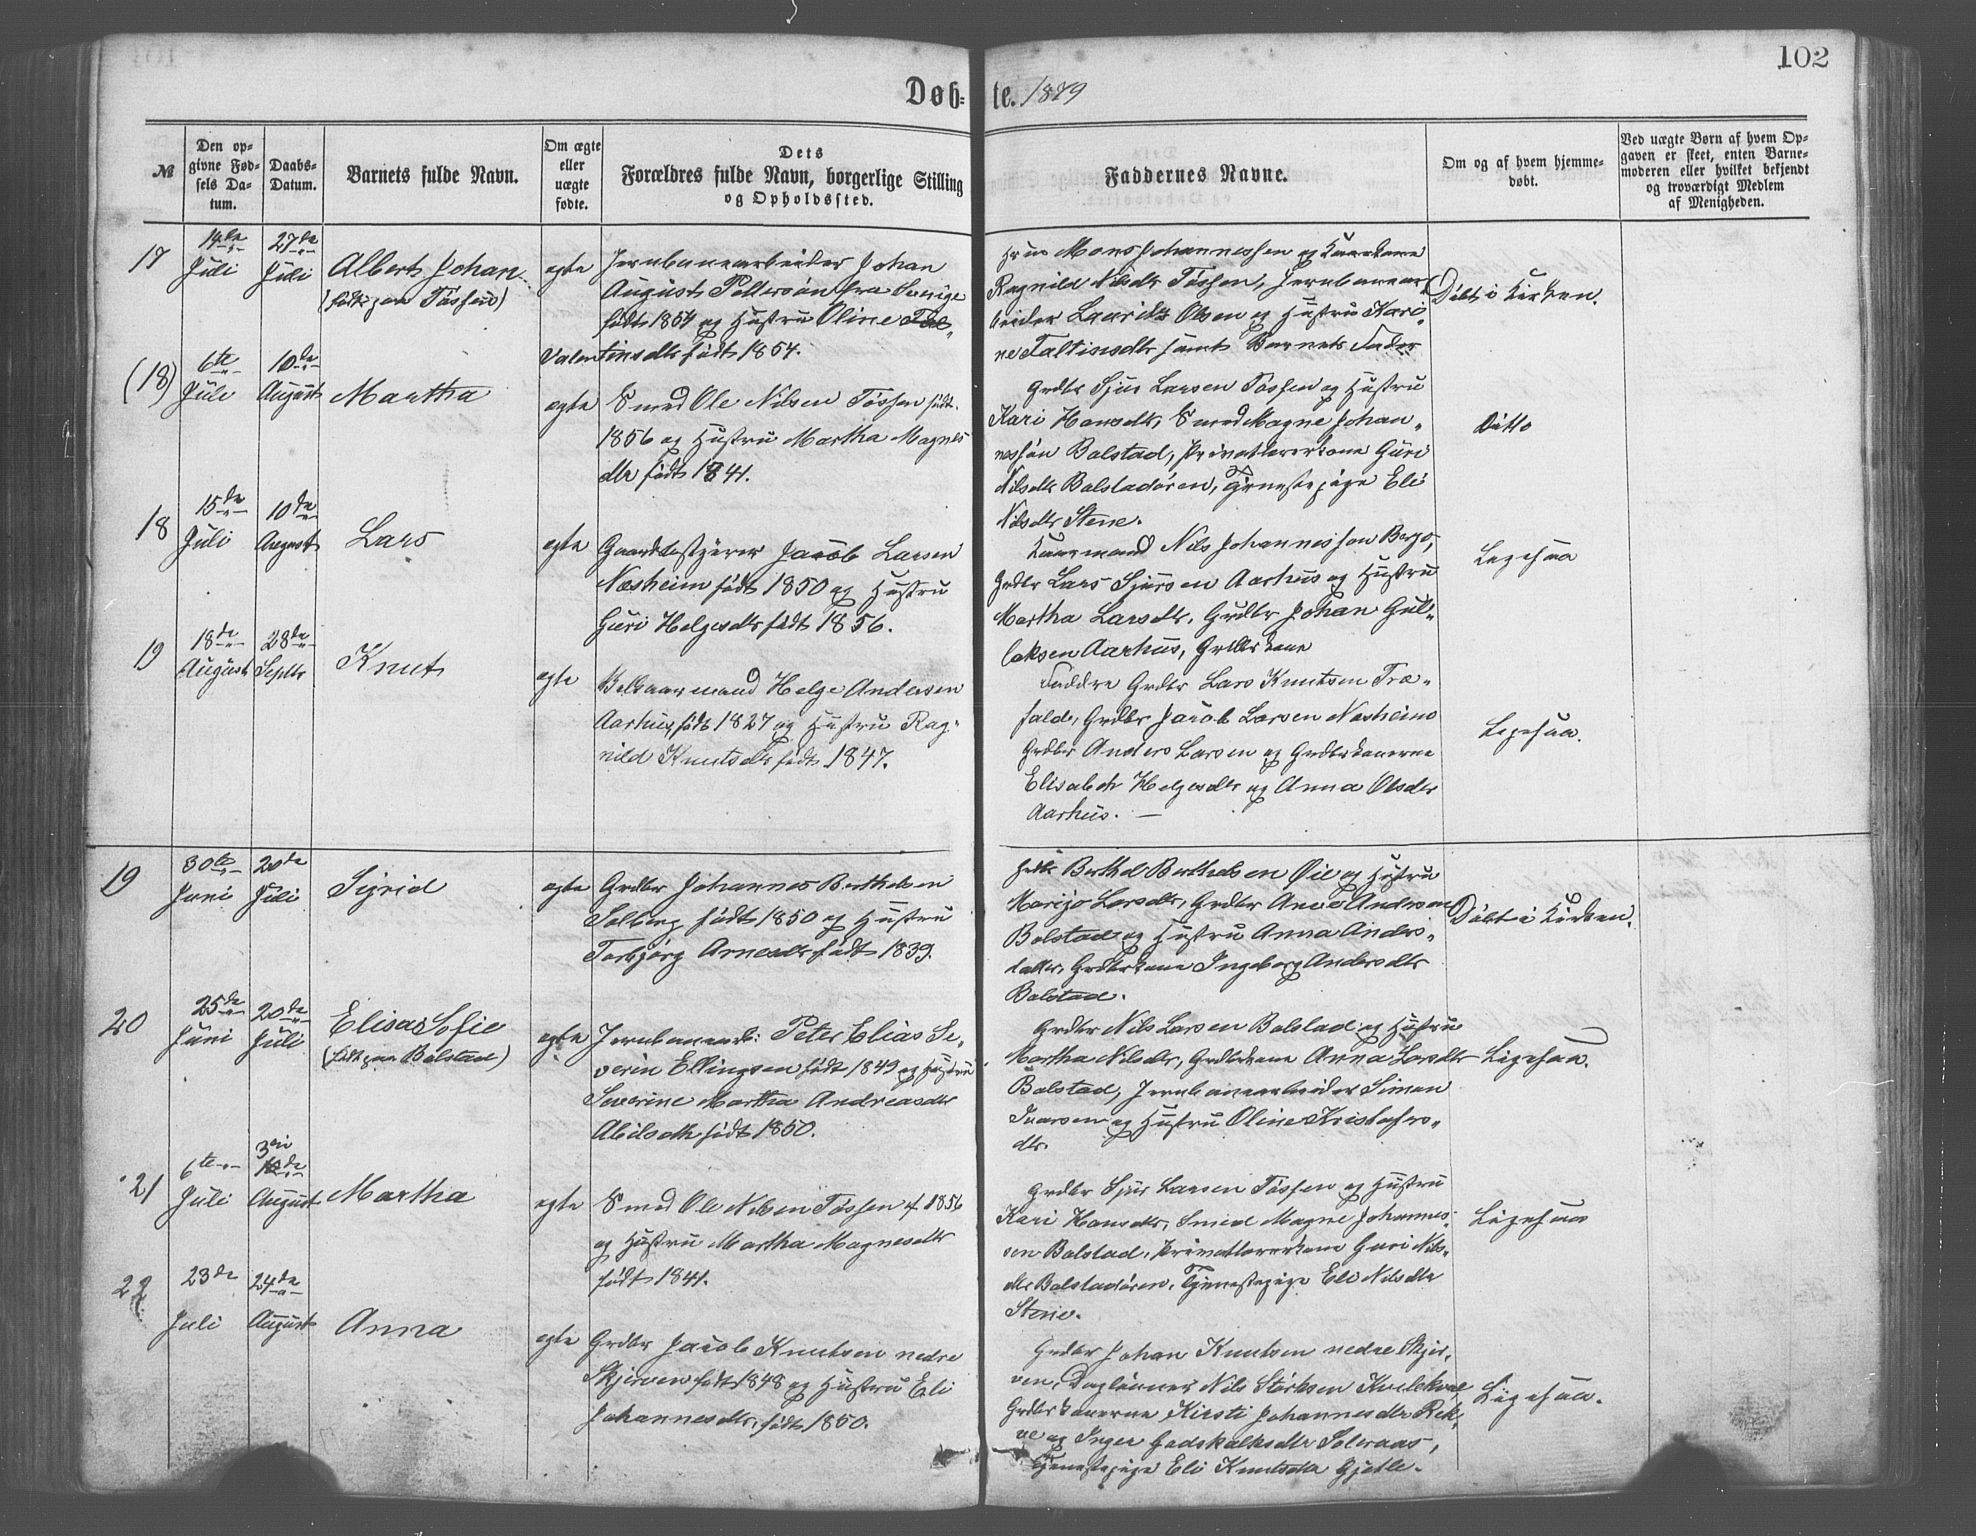 102
Døb=te. 1879
№
Den opgivne Fødsels Datum.
Daabs-Datum.
Barnets fulde Navn.
Om ægte eller uægte fødte.
Dets Forældres fulde Navn, borgerlige Stilling og Opholdssted.
Faddernes Navne.
Om og af hvem hjemmedøbt.
Ved uægte Børn af hvem Opgaven er skeet, enten Barnemoderen eller hvilket bekjendt og troværdigt Medlem af Menigheden.
17
14de Juli
27de Juli
Albert Johan
(født paa Tøssen)
egte
Jernbanearbeider Johan
August Pettersøn fra Sverige
født 1854 og Hustru Oline
Valentinsdtr født 1854.
Mons Johannessen og Kaarkone
Ragnild Nilsdtr Tøssen, Jernbanear-
beider Laurits Olsen og Hustru Kari-
ne Faltinsdtr samt Barnets Fader
Døbt i Kirken.
(18)
6te Juli
10de August
Martha
egte
Smed Ole Nilsen Tøssen født
1856 og Hustru Martha Magnes
dtr født 1841.
Grdbr Sjur Larsen Tøssen og Hustru
Kari Hansdtr, Smed Magne Johan-
nessøn Bolstad, Privatlærerkone Guri
Nilsdtr Bolstadøren, Tjenestepige Eli
Nilsdtr Stene.
Ditto
18
15de Juli
10de August
Lars
egte
Gaardbestyrer Jacob Larsen
Næsheim født 1850 og Hustru
Guri Helgesdtr født 1856.
Kaarmand Nils Johannesson Berge,
Grdbr Lars Sjursen Aarhus og Hustru
Martha Larsdtr, Grdbr Johan Gul-
laksen Aarhus, Grdbrkone
Ligesaa
19
18de August
28de Septbr
Knut
egte
Kaarmand Helge Andersen
Aarhus født 1827 og Hustru Rag-
nild Knutsdtr født 1847.
Faddre Grdbr Lars Knutsen Træ-
fald, Grdbr Jacob Larsen Næsheim
Grdbr Anders Larsen og Grdbrkonerne
Elisabeth Helgesdtr og Anna Olsdtr
Aarhus. —
Ligesaa.
19
30te Juni
20de Juli
Sigrid
egte
Grdbr Johannes Berthelsen
Solberg født 1850 og Hustru
Torbjørg Arnesdtr født 1839.
Grdbr Berthel Berthelsen Øie og Hustru
Marijo Larsdtr, Grdbr Arne Andersen
Bolstad og Hustru Anna Anders-
datter, Grdbrkone Ingeborg Andersdtr
Bolstad.
Døbt i Kirken.
20
25de Juni
20de Juli
Elisa Sofie
(født paa Bolstad)
egte
Jernbanearb: Peter Elias Se-
verin Ellingsen født 1849 og Hustru
Severine Martha Andreasdtr
født 1850.
Grdbr Nils Larsen Bolstad og Hustru
Martha Nilsdtr, Grdbrkone Anna Larsdtr
Bolstad, Jernbanearbeider Simon
Ivarsen og Hustru Oline Kristofers-
dtr.
Ligesaa.
21
6te Juli
3die August
Martha
egte
Smed Ole Nilsen Tøssen f 1856
og Hustru Martha Magnesdtr
født 1841.
Grdbr Sjur Larsen Tøssen og Hustru
Kari Hansdtr, Smed Magne Johannes-
sen Bolstad, Privatlærerkone Guri Nils-
dtr Bolstadøren, Tjenestepige Eli Nilsdtr
Stene.
Ligesaa
22
23de Juli
24de August
Anna
egte
Grdbr Jacob Knutsen nedre
Skjerven født 1848 og Hustru Eli
Johannesdtr, født 1850.
Grdbr Johan Knutsen nedre Skjer-
ven, Daglønner Nils Størksen Kvilekval
Grdbrkonerne Kirsti Johannesdtr Rek-
ve og Inger Godskalksdtr
Tjenestepige Eli Knutsdtr Gjelle.
Ligesaa.